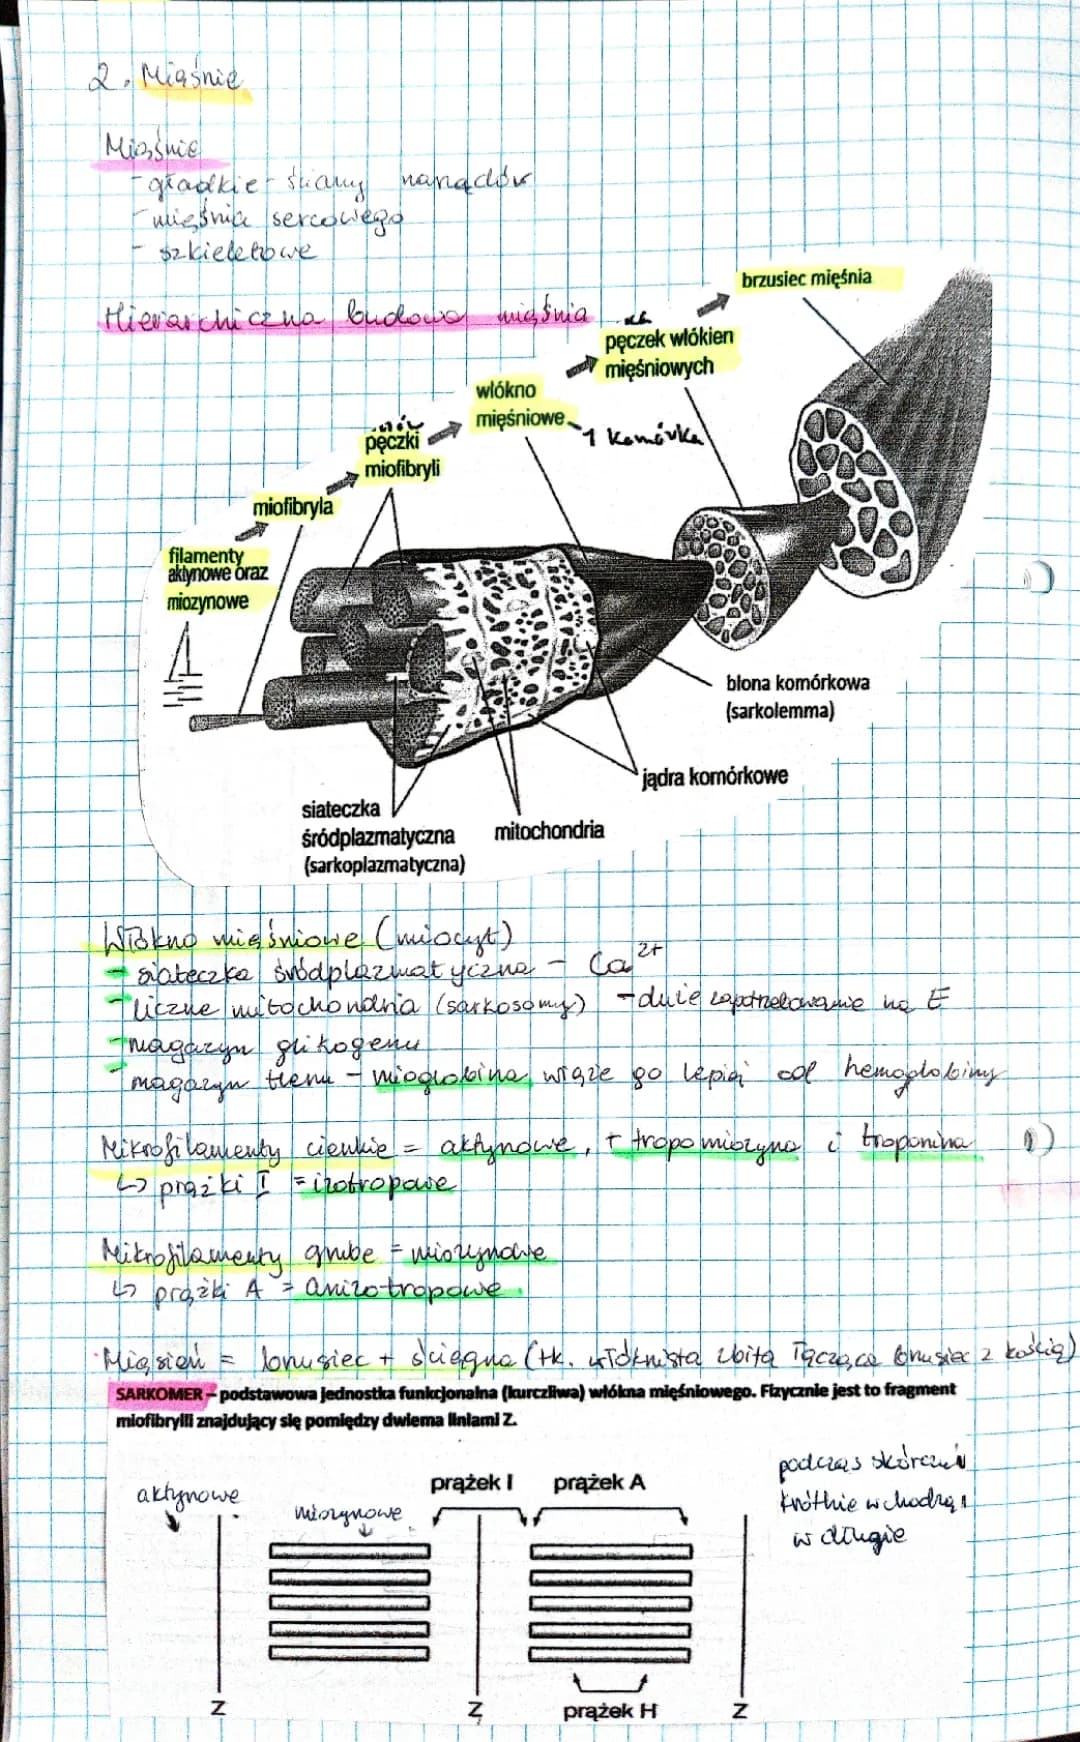 2. Mięśnie
Mięśnie
- gładkie - ściany narządów
- mięśnia sercowego
- szkieletowe
Hierarchiczna budowa mięśnia
brzusiec mięśnia
pęczek włókien
mięśniowych
włókno
mięśniowe - 1 komórka
pęczki
miofibryli
miofibryla
filamenty
aktynowe oraz
miozynowe
błona komórkowa
(sarkolemma)
jądra komórkowe
siateczka
śródplazmatyczna
(sarkoplazmatyczna)
mitochondria
Włókno mięśniowe (miocyt)
- siateczka śródplazmatyczna - Ca2+
- liczne mitochondria (sarkosomy) - duże zapotrzebowanie na E
- magazyn glikogenu
- magazyn tlenu - mioglobina, wiąże go lepiej od hemoglobiny
Mikrofilamenty cienkie = aktynowe, + tropomiozyna i troponina
↳ prążki I = izotropowe
Mikrofilamenty grube = miozynowe
↳ prążki A = anizotropowe
Mięsień = brzusiec + ścięgna (tk. włóknista zbita łącząca brzusiec z kością)
SARKOMER – podstawowa jednostka funkcjonalna (kurczliwa) włókna mięśniowego. Fizycznie jest to fragment
miofibrylli znajdujący się pomiędzy dwiema liniami Z.
aktynowe
miozynowe
prążek I
prążek A
podczas skurczu
krótkie wchodzą
w długie
Z
Z
prążek H
Z